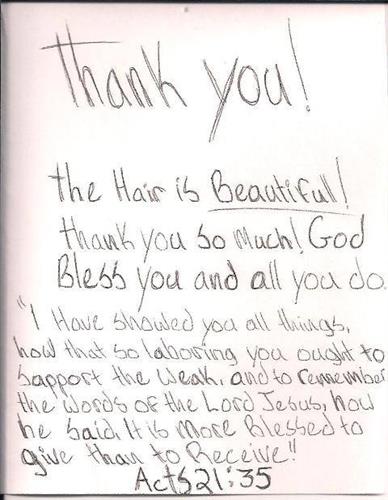 Thank you!
the Hair is Beautiful!
thank you so much! God
Bless you and all you do.
"I Have showed you all things,
how that so laboring you ought to
sapport the weak, and to remember
the words of the Lord Jesus, how
he said, It is more Blessed to
give than to Receive."
Acts 21:35